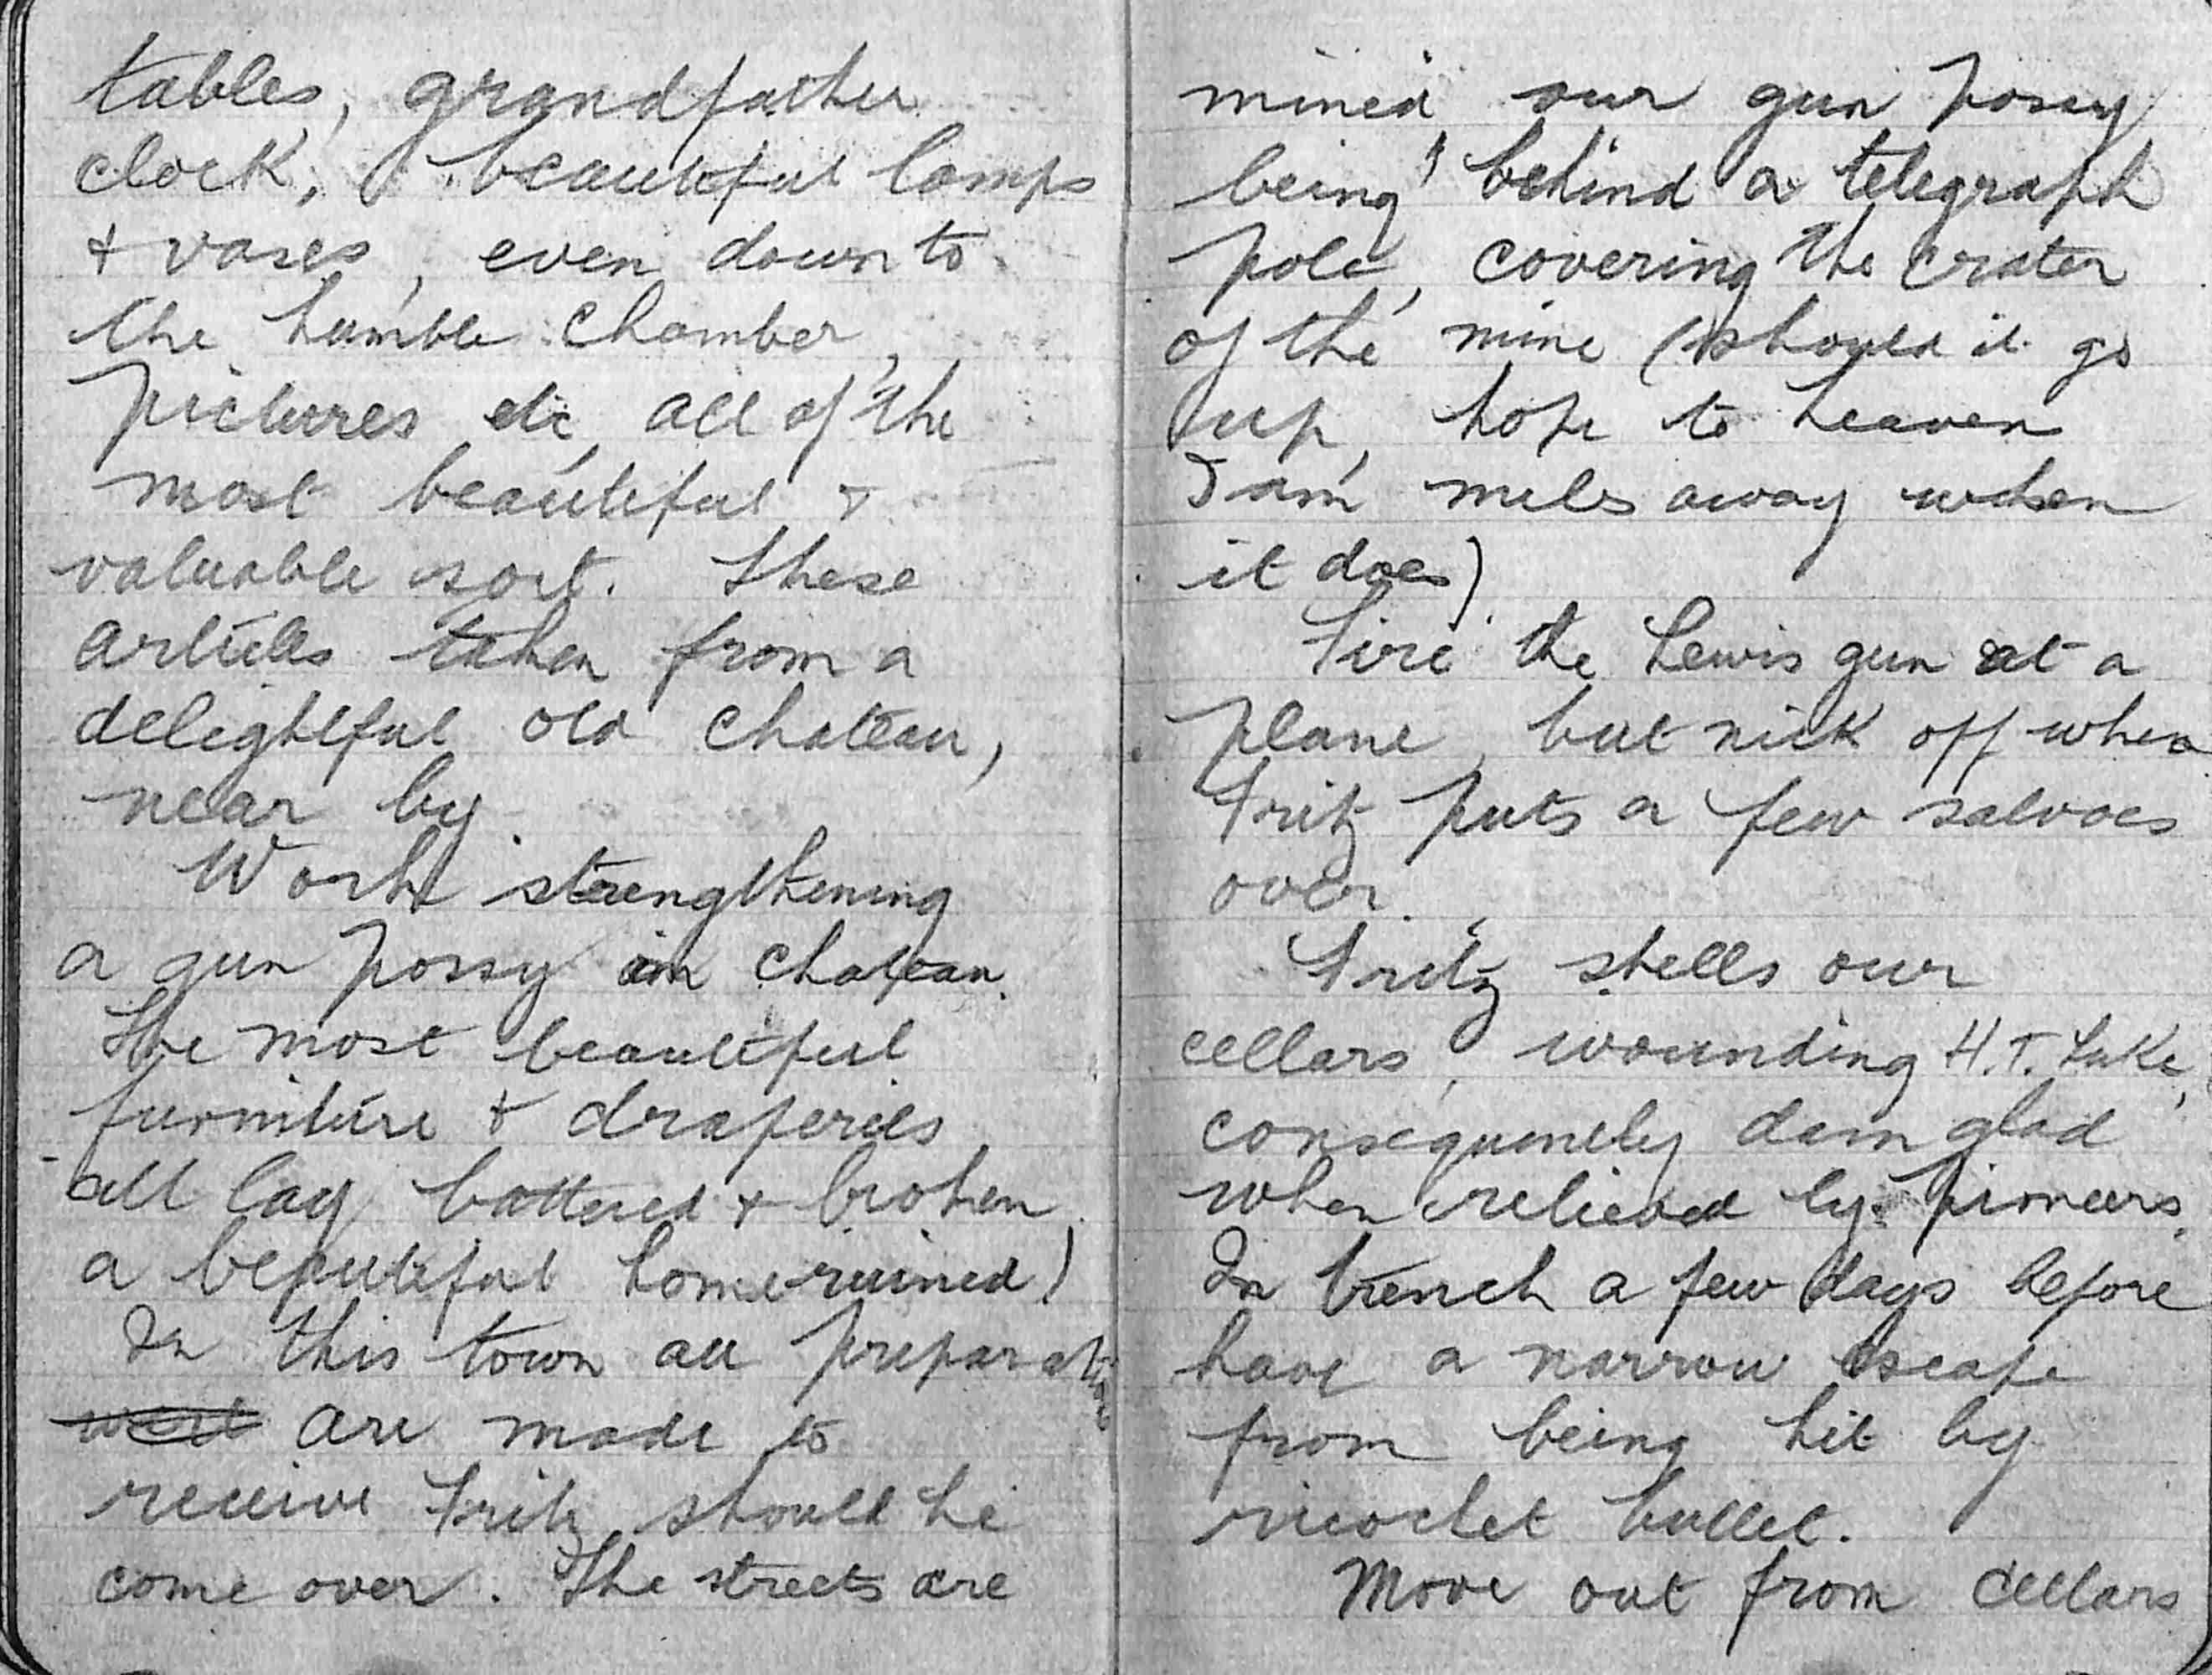 tables, grandfather
clock, beautiful lamps
& vases, even down to
the humble chamber,
pictures etc, all of the
most beautiful &
valuable sort. These
articles taken from a
delightful old chateau,
near by.
Work strengthening
a gun possy in chateau.
The most beautiful
furniture & draperies
all lay battered & broken
a beautiful home ruined!
In this town all preparations
were are made to
receive Fritz should he
come over. The streets are
mined, our gun possy
being behind a telegraph
pole, covering the crater
of the mine (should it go
up, hope to heaven
I am miles away when
it does)
Fire the Lewis gun at a
plane, but nick off when
Fritz puts a few salvoes
over.
Fritz shells our
cellars, wounding H.T. Luke,
consequenelty dam glad
when relieved by Pioneers.
In trench a few days before
have a narrow escape
from being hit by
ricochet bullet.
Move out from cellars